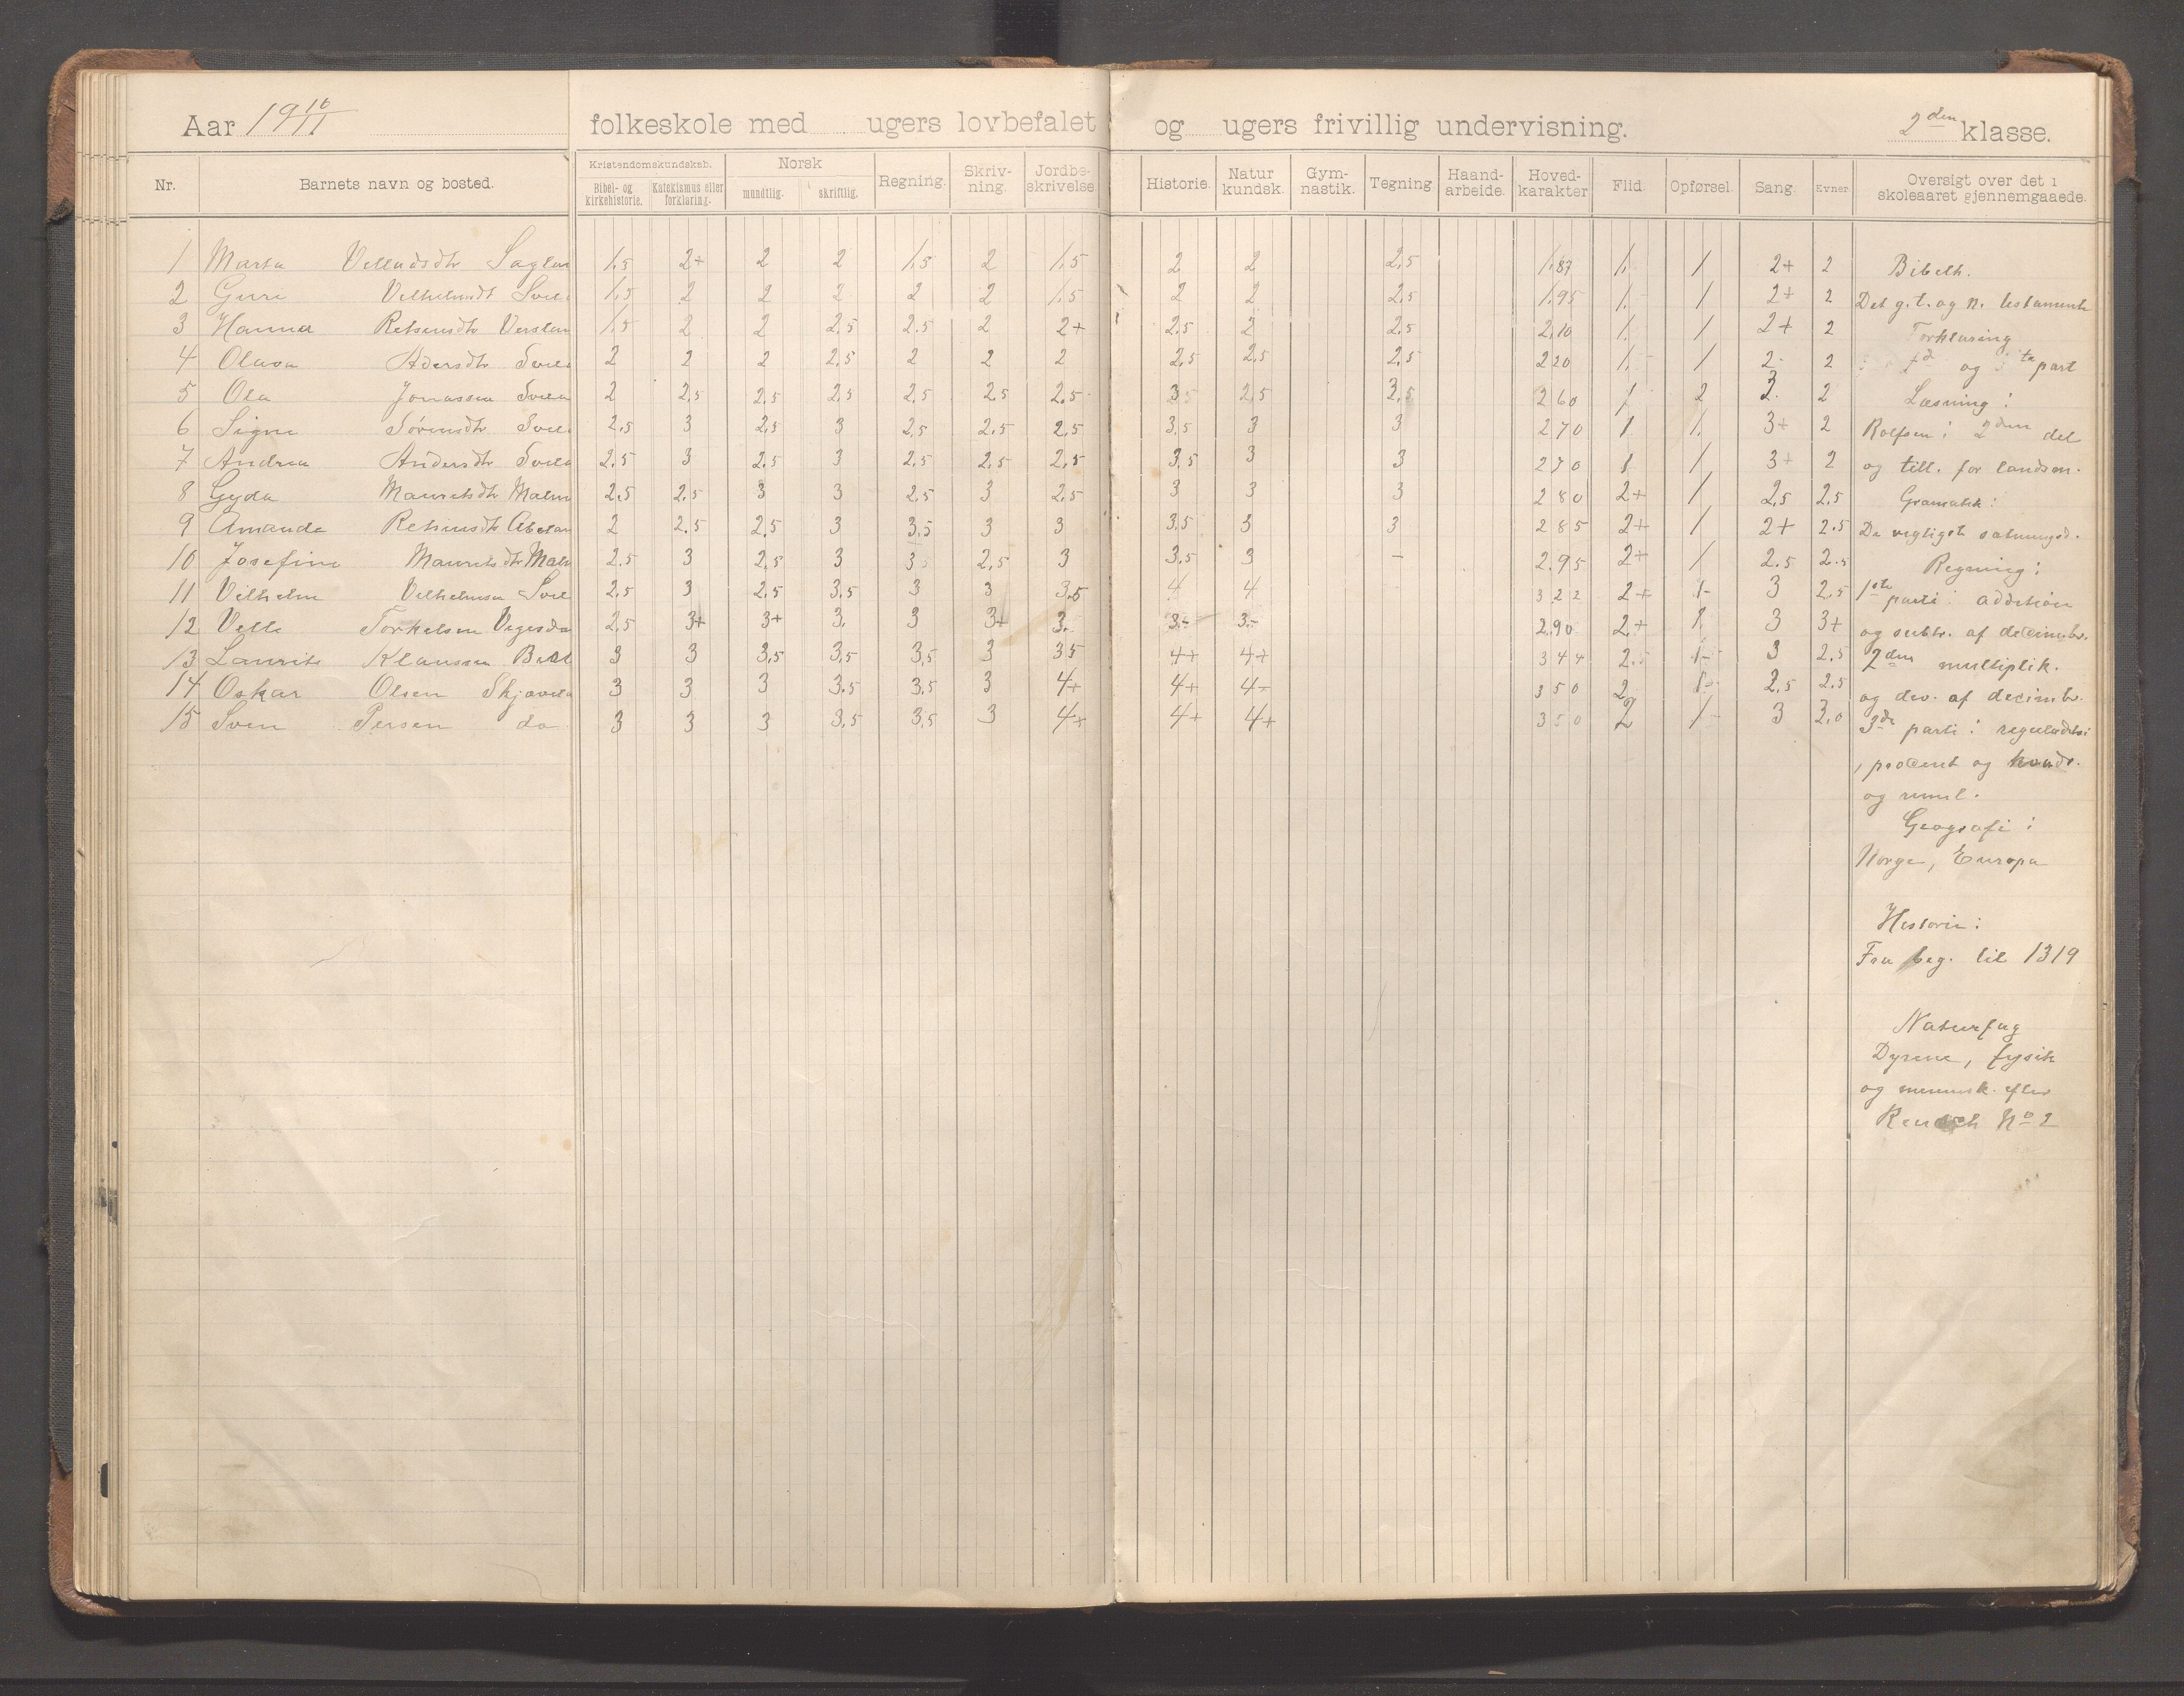 Aar 19 10/11 folkeskole med ugers lovbefalet og ugers frivillig undervisning. 2den klasse.
Nr. Barnets navn og bosted. Kristendomskundskab. Bibel- og kirkehistorie. Katekismus eller forklaring. Norsk mundtlig. skriftlig. Regning. Skriv-ning. Jordbe-skrivelse Historie. Natur kundsk. Gym-nastik. Tegning Haand-arbeide. Hoved-karakter Flid. Opførsel. Sang. Evner. Oversigt over det i skoleaaret gjennemgaaede.
1 Marta 1,5 2+ 2 2 1,5 2 1,5 2 2 2,5 1,83 1, 1 2+ 2
2 Guri 1,5 2 2 2 2 2 1,5 2 2 2,5 1,95 1,- 1 2+ 2
3 Hanna 1,5 2 2 2,5 2,5 2 2+ 2,5 2 2,5 2,10 1, 1 2+ 2
4 Olava 2 2 2 2,5 2 2 2 2,5 2,5 2,5 220 1,- 1 2- 2
5 Ola Jonassen 2 2,5 2,5 2,5 2,5 2,5 2,5 3,5 2,5 3,5 260 1 2 3. 2
6 Signe Sørensdtr 2,5 3 2,5 3 2,5 2,5 2,5 3,5 3 3 270 1 1, 3+ 2
7 Andrea Andersdtr 2,5 3 2,5 3 2,5 2,5 2,5 3,5 3 3 270 1 1, 3+ 2
8 Gyda Mauritsdtr 2,5 2,5 3 3 2,5 3 2,5 3 3 3 280 2+ 1, 2,5 2,5
9 Amanda 2 2,5 2,5 3 3,5 3 3 3,5 3 3 285 2+ 1 2+ 2.5
10 Josefine Mauritsdtr 2,5 3 2,5 3 3 2,5 3 3,5 3 – 2.95 2+ 1 2.5 2.5
11 Vilhelm Vilhelmsen 2,5 3 2,5 3,5 3 3 3,5 4 4 322 2+ 1- 3 2.5
12 Velle Torkelsen 2,5 3+ 3+ 3, 3 3+ 3- 3,- 3,- 2,90 2+ 1, 3 3+
13 Laurits Klaussen 3 3 3,5 3,5 3,5 3 3,5 4+ 4+ 344 2.5 1- 3 2.5
14 Oskar Olsen 3 3 3 3.5 3,5 3 4+ 4+ 4- 350 2 1- 2,5 2.5
15 Sven Persen do 3 3 3 3,5 3,5 3 4+ 4+ 4+ 350 2 1- 3 3,0
Bibelh.
Det g. t. og n. testamente
Forklaring
og part
Læsning:
Rolfsen: 2den del
og till. for landsm.
Gramatik:
De vigtigste sætningsd.
Regning:
1ste parti: addition
og subtr. af decimbr.
2den multiplik.
og div. af decimbr.
3de parti: reguladetri
, procent og
og
Geografi:
Norge, Europa
Historie:
Fra beg. til 1319
Naturfag
Dyrene, fysik
og mennsk. efter
No 2